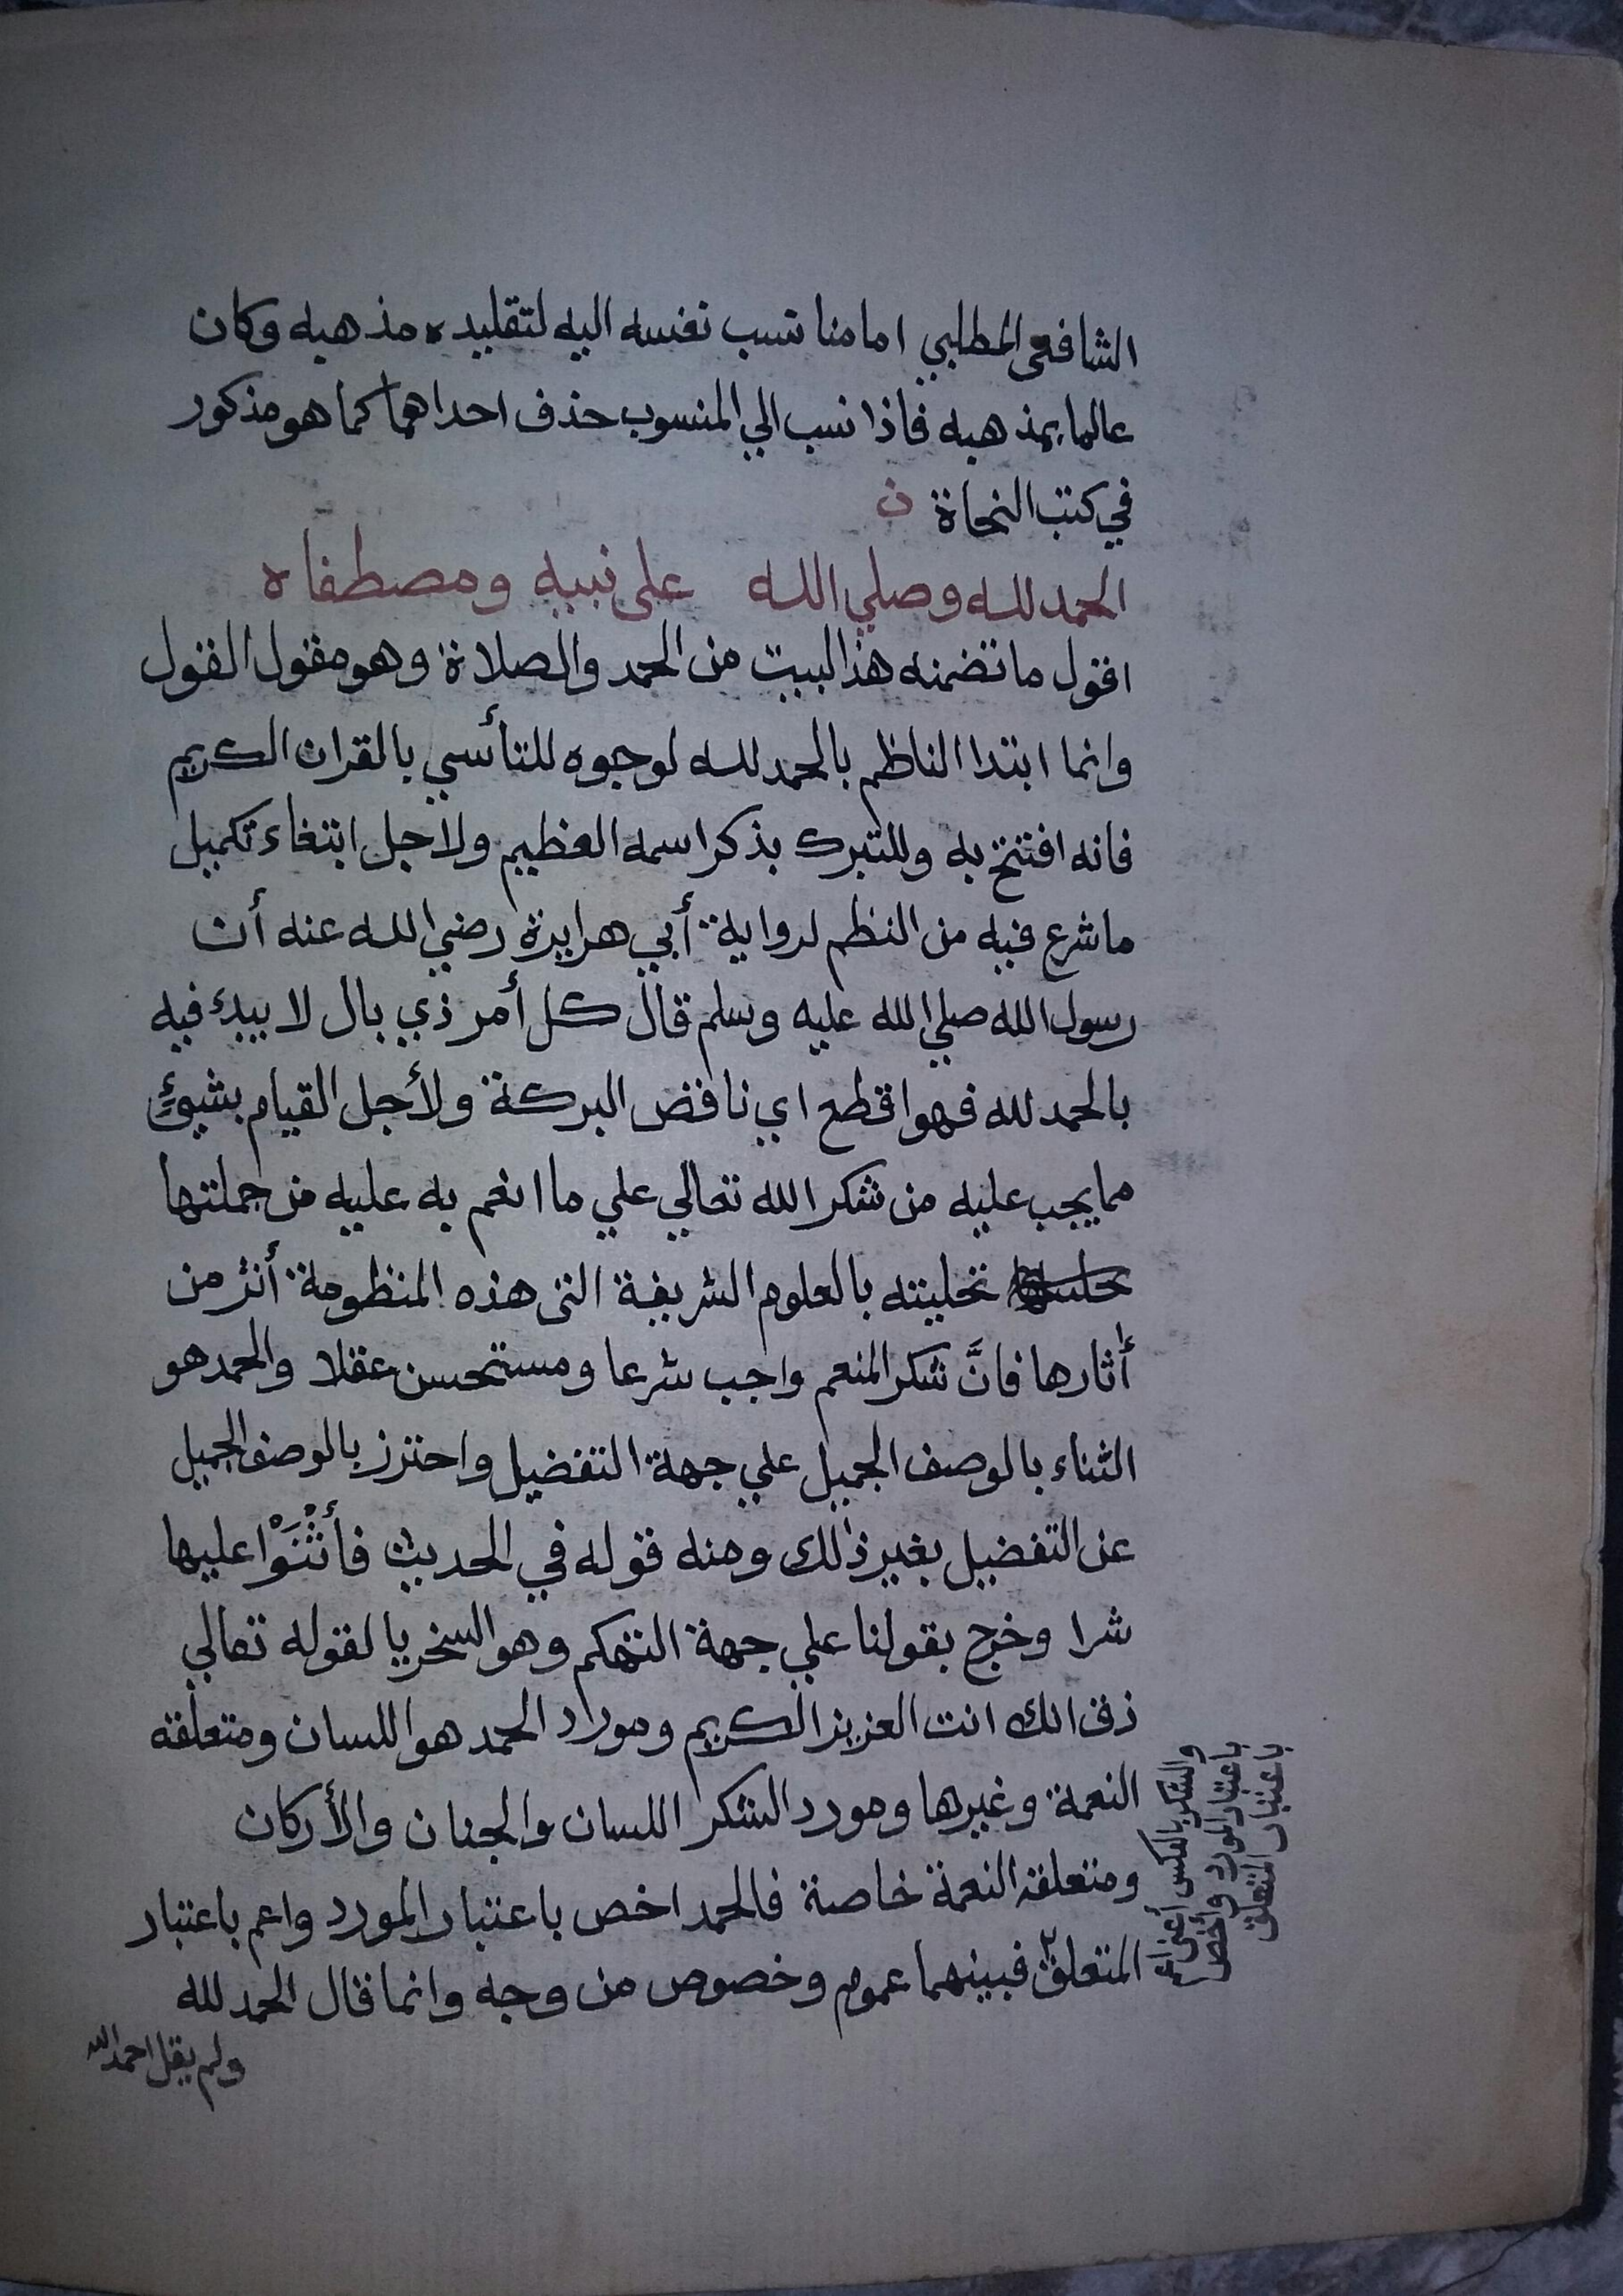 الشافعى المطلبي امامنا نسب نفسه اليه لتقليده مذهبه وكان
عالما بمذهبه فاذا نسب الي المنسوب حذف احداهما كما هو مذكور
في كتب النحاة ن
الحمد لله وصلي الله على نبيه ومصطفاه
اقول ما تضمنه هذ البيت من الحمد والصلاة وهو مقول القول
وانما ابتدا الناظم بالحمد لله لوجوه للتأسي بالقران الكريم
فانه افتتح به وللتبرك بذكر اسمه العظيم ولاجل ابتغاء تكميل
ما شرع فيه من النظم لرواية أبي هرايرة رضي الله عنه أن
رسول الله صلي الله عليه وسلم قال كل أمر ذي بال لا يبدئ فيه
بالحمد لله فهو اقطع اي ناقض البركة ولأجل القيام بشيئ
مما يجب عليه من شكر الله تعالي علي ما انعم به عليه من جملتها
تحليته بالعلوم الشريفة التى هذه المنظومة أثر من
أثارها فانَّ شكر المنعم واجب شرعا ومستحسن عقلا والحمد هو
الثناء بالوصف الجميل علي جهة التفضيل واحترز بالوصف الجميل
عن التفضيل بغير ذلك ومنه قوله في الحديث فأثْنَوْا عليها
شرا وخرج بقولنا علي جهة التهكم وهو السخريا لقوله تعالي
ذق انك انت العزيز الكريم وموراد الحمد هو اللسان ومتعلقه
النعمة وغيرها ومورد الشكر اللسان والجنان والأركان
ومتعلقه النعمة خاصة فالحمد اخص باعتبار المورد واعم باعتبار
المتعلق فبينهما عموم وخصوص من وجه وانما قال الحمد لله
ولم يقل احمد الله
والشكر بالعكس أعنى
باعتبار المورد وأخص
باعتبار المتعلق